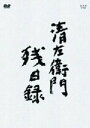 清左衛門
残日録